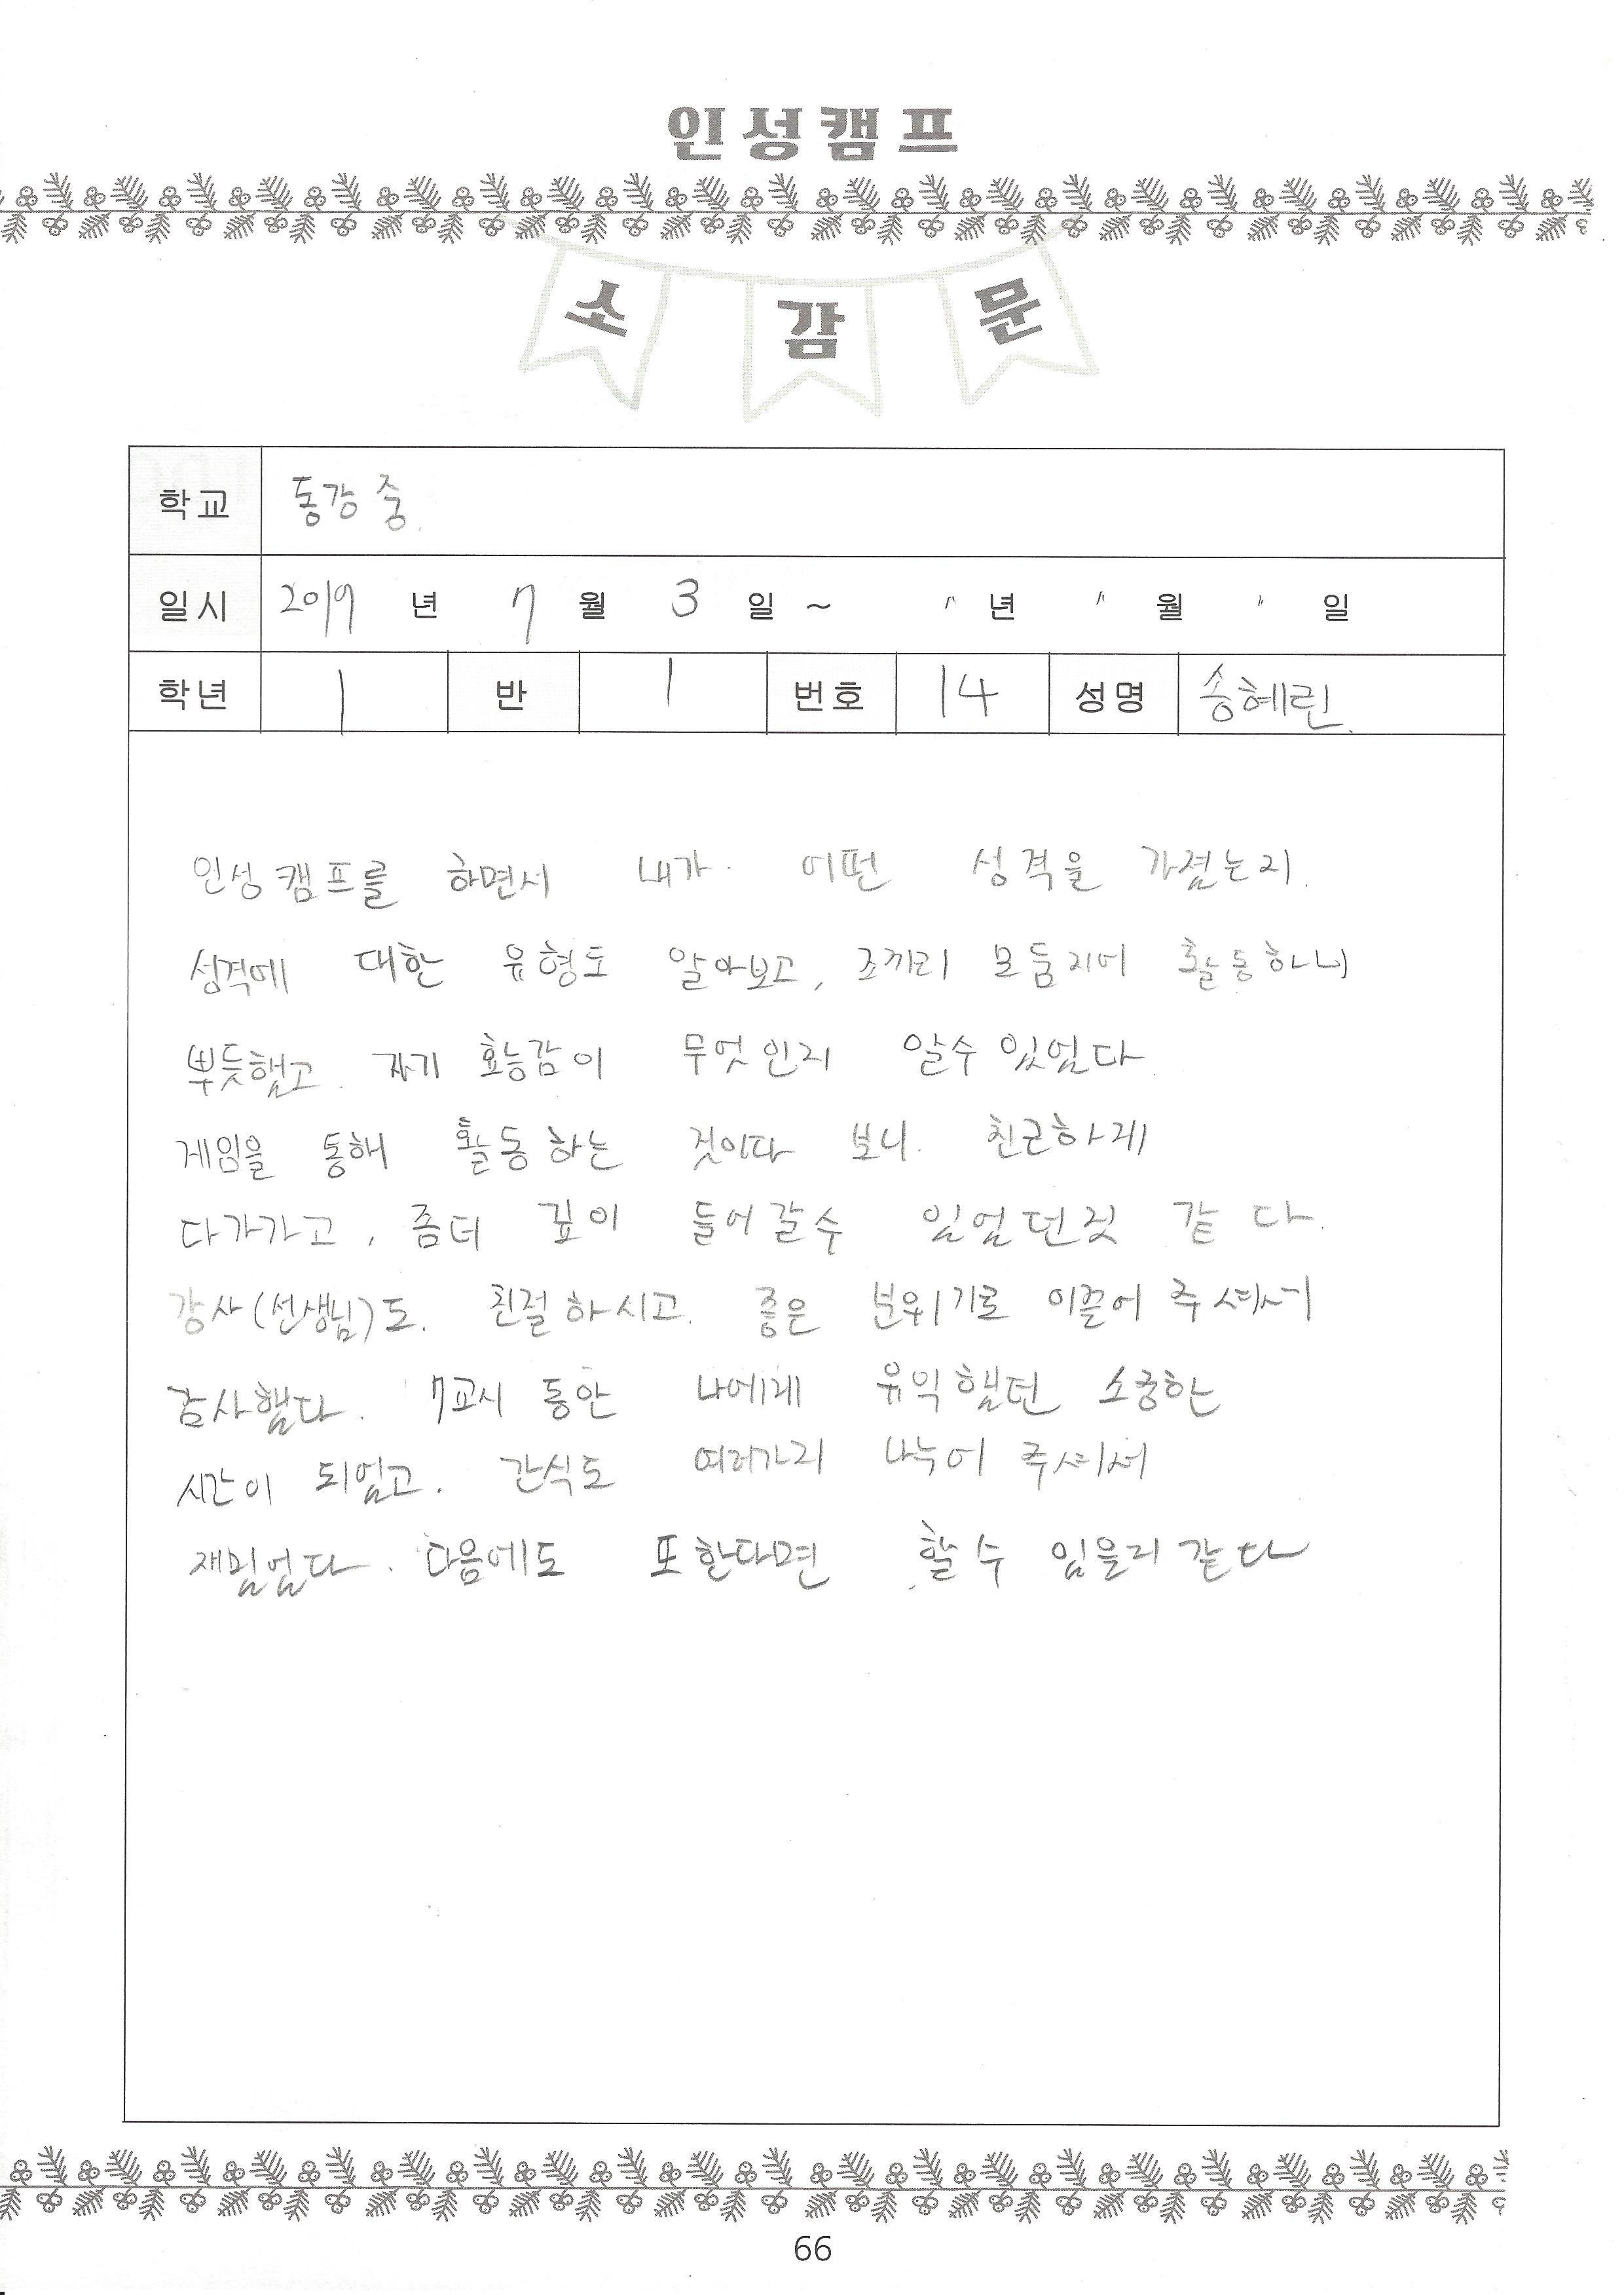 인성캠프
소감문
학교 동강중.
일시 2019 년 7 월 3 일 ~ 〃 년 〃 월 〃 일
학년 1 반 1 번호 14 성명 송혜린.
인성캠프를 하면서 내가 어떤 성격을 가졌는지.
성격에 대한 유형도 알아보고, 조끼리 모둠지어 활동하니
뿌듯했고. 자기 효능감이 무엇인지 알수 있었다.
게임을 통해 활동하는 것이다 보니. 친근하게
다가가고, 좀더 깊이 들어갈수 있었던것 같다.
강사(선생님)도. 친절하시고. 좋은 분위기로 이끌어 주셔서
감사했다. 7교시 동안 나에게 유익했던 소중한
시간이 되었고. 간식도 여러가지 나누어 주셔서
재밌었다. 다음에도 또 한다면 할 수 있을지 같다
66